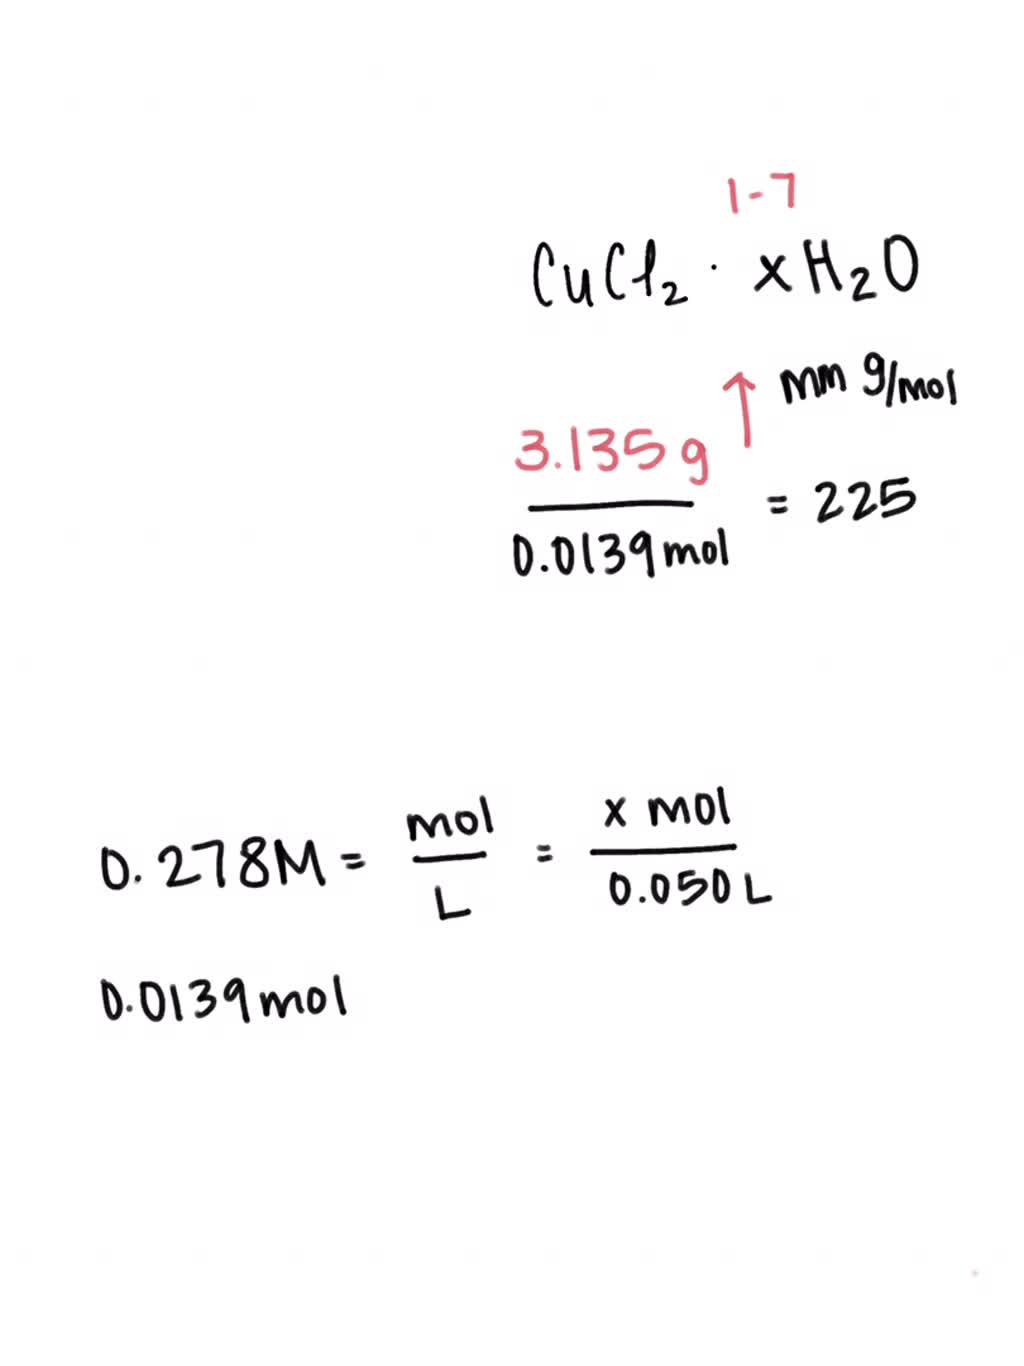 1-7
CuCl₂ · xH₂O
mm g/mol
3.135 g
0.0139 mol
= 225
0.278M = mol/L = x mol/0.050 L
0.0139 mol